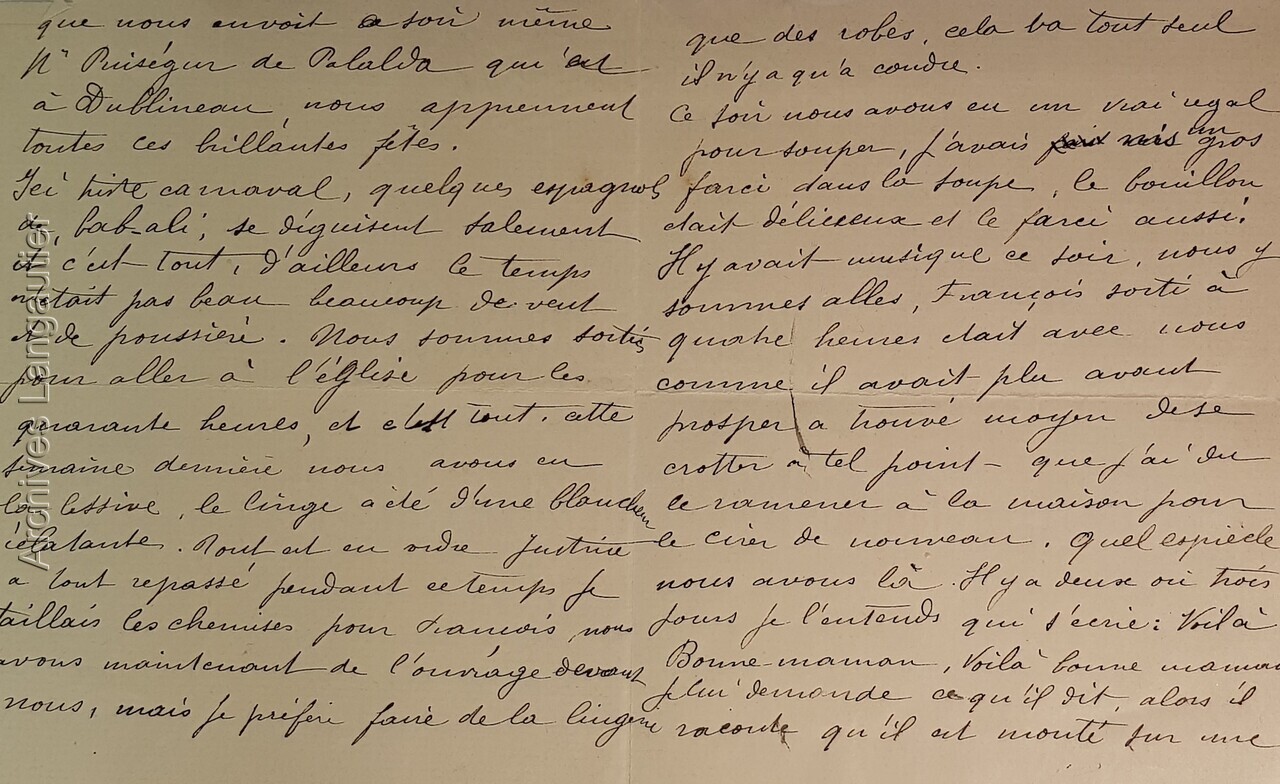 que nous envoit ce soir même
Mr Puiségur de Palalda qui est
à Dublineau, nous apprennent
toutes ces brillantes fêtes.
Ici triste carnaval, quelques espagnols
de bab-ali, se déguisent salement
et c'est tout, d'ailleurs le temps
n'était pas beau beaucoup de vent
et de poussière. Nous sommes sortis
pour aller à l'église pour les
quarante heures, et c'est tout. cette
semaine dernière nous avons eu
la lessive, le linge a été d'une blancheur
éclatante. Tout est en ordre Justine
a tout repassé pendant ce temps je
taillais les chemises pour François, nous
avons maintenant de l'ouvrage devant
nous, mais je préfère faire de la lingerie
que des robes, cela va tout seul
il n'y a qu'à coudre.
Ce soir nous avons eu un vrai regal
pour souper, j'avais mis un gros
farci dans la soupe, le bouillon
était délicieux et le farci aussi.
Il y avait musique ce soir, nous y
sommes alles, François sorti à
quatre heures était avec nous
comme il avait plu avant
prosper a trouvé moyen de se
crotter à tel point que j'ai du
le ramener à la maison pour
le cirer de nouveau. Quel espiècle
nous avons là. Il y a deux ou trois
jours je l'entends qui s'écrie : Voilà
Bonne-maman, Voilà bonne maman
je lui demande ce qu'il dit, alors il
raconte qu'il est monté sur une
Archives Langautier